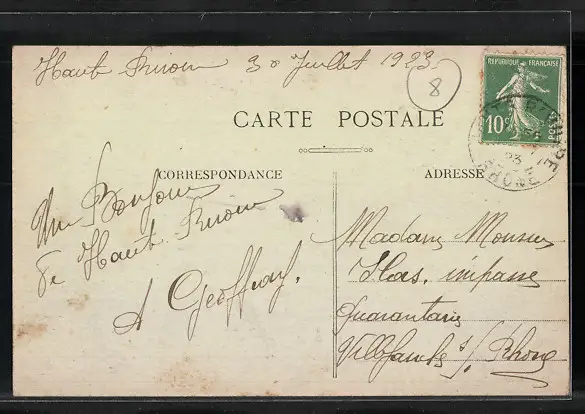 Haut Rivoire 30 Juillet 1923
8
REPUBLIQUE FRANÇAISE
10c
POSTES
CARTE POSTALE
CORRESPONDANCE
ADRESSE
Un Bonjour
de Haut Rivoire
A Geoffray.
Madame Monsieur
impasse
Quarantaine
Villefranche s/ Rhone
RHONE